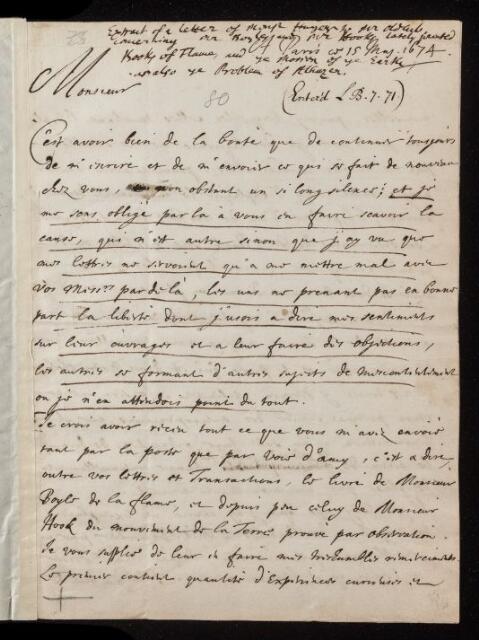 Extract of a letter of Monsr Hugens to Mr Oldenb.
concerning Mr Boyle and Mr Hook, lately printed
Books of Flame, and ye Motion of ye Earth
as also ye Problem of Alhazen.
Paris ce 15 May. 1674.
Monsieur
80
(Enter'd L.B. 7. 71)
C'est avoir bien de la bonté que de continuer tousjours
de m'escrire et de m'envoier ce qui se fait de nouveau
chez vous, non obstant un si long silence; et je
me sens obligè par là à vous en faire scavoir la
cause, qui n'est autre sinon que j'ay vu que
mes lettres ne servoient qu'a me mettre mal avec
vos Messrs par delà, les uns ne prenant pas en bonne
part la libertè dont j'usois a dire mes sentiments
sur leur ouvrages et a leur faire des objections,
les autres se formant d'autres sujects de mescontentement
ou je n'en attendois point du tout.
Je crois avoir receu tout ce que vous m'avez envoiè
tant par la poste que par voie d'amy, c'est a dire,
outre vos lettres et Transactions, le livre de Monsieur
Boyle de la flame, et depuis peu celuy de Monsieur
Hook du mouvement de la Terre prouvè par observation.
Je vous supplie de leur en faire mes treshumbles remerciements.
Le premier contient quantitè d'Experiences curieuses et